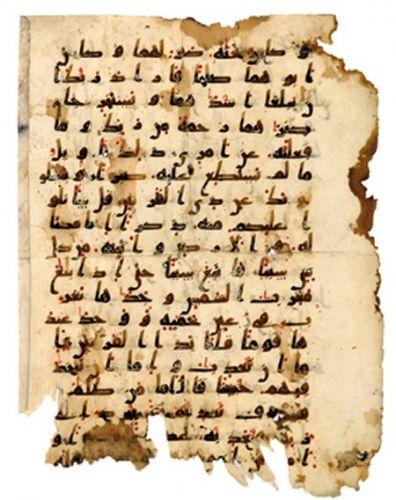 وكان تحته كنز لهما وكان
ابوهما صلحا فاراد ربك ا
ن يبلغا اشدهما ويستخرجا
كنزهما رحمة من ربك وما
فعلته عن امري ذلك تاويل
ما لم تسطع عليه صبرا ويسلو
نك عن ذي القرنين قل ساتلو
ا عليكم منه ذكرا انا مكنا
له في الارض واتينه من كل
شي سببا فاتبع سببا حتى اذا بلغ
مغرب الشمس وجدها تغر
ب في عين حمية ووجد عند
ها قوما قلنا يذا القرنين ا
ما ان تعذب واما ان تتخذ
فيهم حسنا قال اما من ظلم
فسوف نعذبه ثم يرد الى
ربه فيعذبه عذابا نكرا و